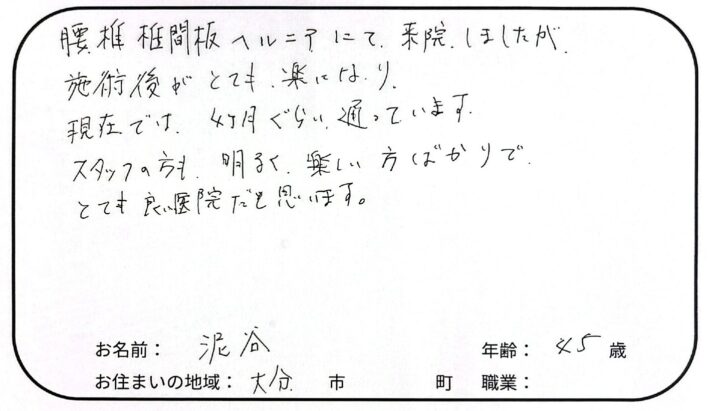 腰椎椎間板ヘルニアにて、来院、しましたが、
施術後がとても、楽になり、
現在では、4ヶ月ぐらい通っています。
スタッフの方も、明るく、楽しい方ばかりで、
とても良い医院だと思います。
お名前： 泥谷 年齢： 45 歳
お住まいの地域： 大分 市 町 職業：